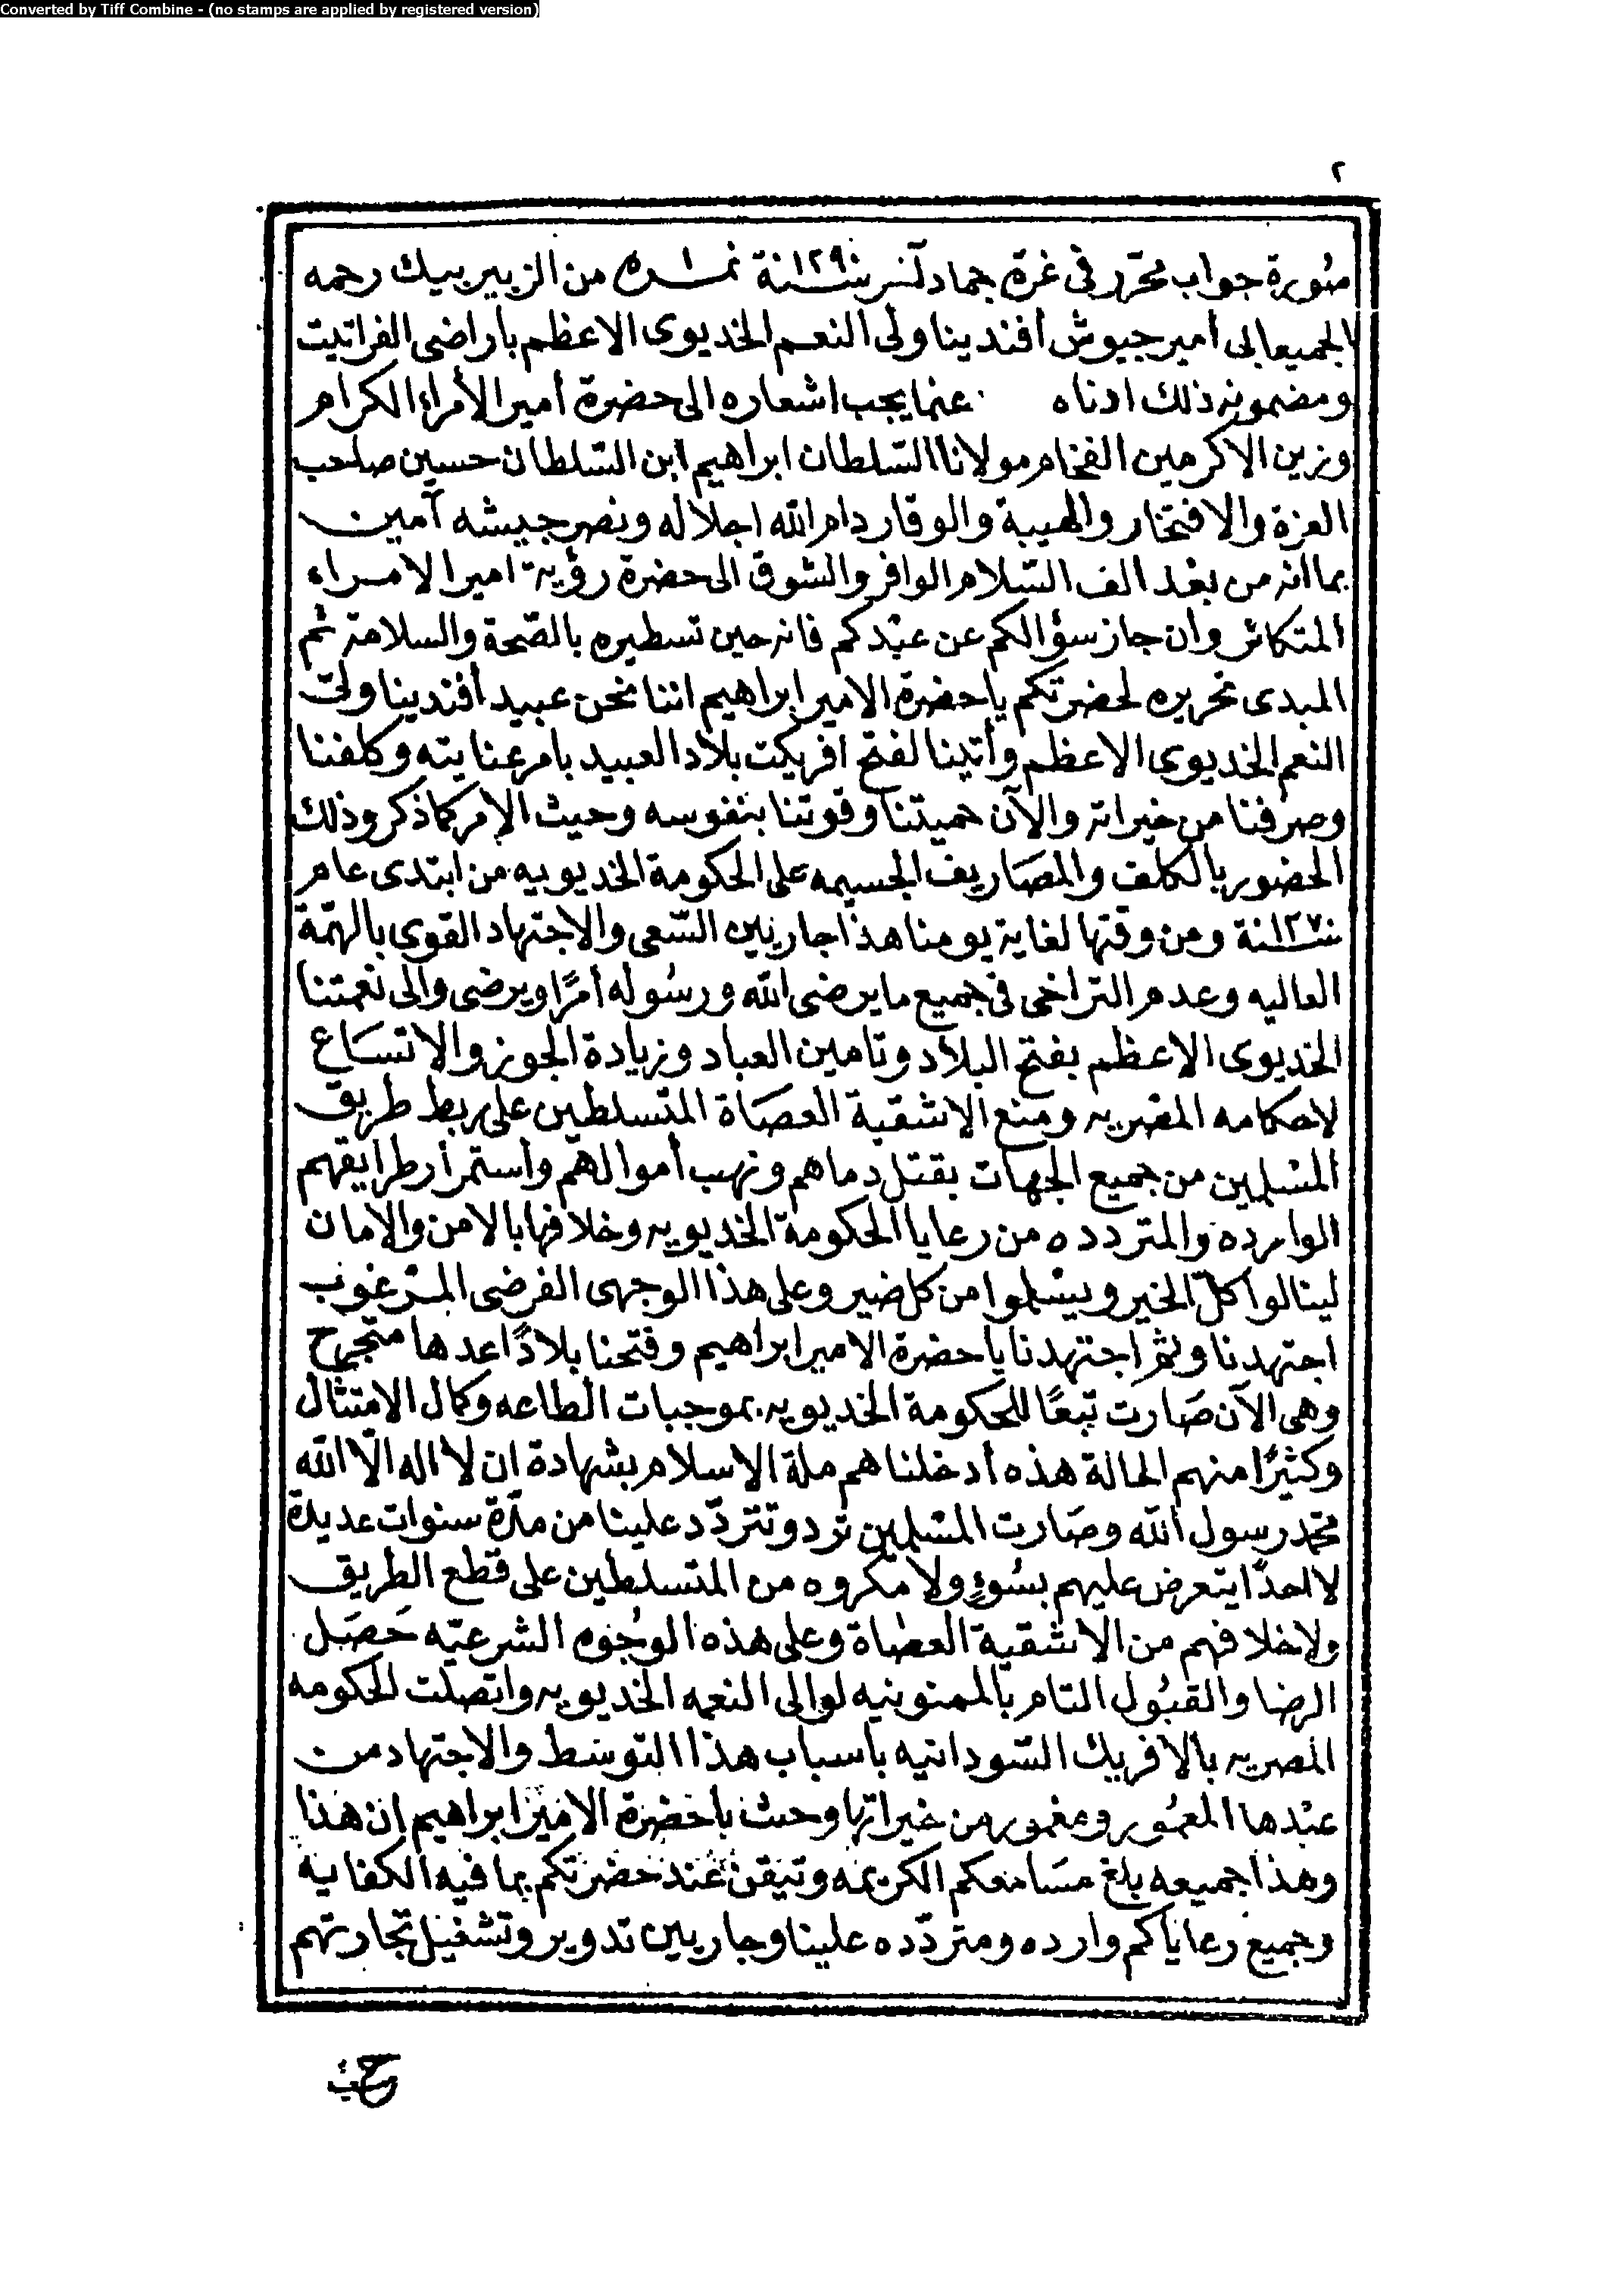 Converted by Tiff Combine - (no stamps are applied by registered version)
٢
صُورة جواب محرّر فى غرة جماد آخر سنة ١٢٩٠ نمرة ١ من الزبير بيك رحمه
الجميعابى أمير جيوش أفندينا ولى النعم الخديوى الاعظم بأراضى الفراتيت
ومضمونه ذلك ادناه عنما يجب اشعاره الى حضرة أمير الأمراء الكرام
وزين الاكرمين الفخام مولانا السّلطان ابراهيم ابن السّلطان حسين صاحب
العزة والافتخار والهيبة والوقار دام الله اجلاله ونصر جيشه آمين
بما انه من بعد الف السّلام الوافر والشوق الى حضرة رؤية امير الامراء
المتكاثر وان جاز سؤالكم عن عبْدكم فانه حين تسطيره بالصّحة والسلامة ثم
المبدى تحريره لحضرتكم يا حضرة الامير ابراهيم اننا نحن عبيد أفندينا ولىّ
النعم الخديوى الاعظم وأتينا لفتح افريكت بلاد العبيد بامر عنايته وكلفنا
وصرفنا من خيراته والآن حميتنا وقوتنا بنفوسه وحيث الامر كما ذكر وذلك
الحضور بالكلف والمصَاريف الجسيمه على الحكومة الخديويه من ابتدى عام
سنة ١٢٧٠ ومن وقتها لغاية يومنا هذا جاريين السّعى والاجتهاد القوى بالهمّة
العاليه وعدم التراخى فى جميع ما يرضى الله ورسُوله أمرًا ويرضى والى نعمتنا
الخديوى الاعظم بفتح البلاد وتامين العباد وزيادة الجوز والاتسَاع
لاحكامه المصريه ومنع الاشقية العصَاة المتسلطين على ربط طريق
المسْلمين من جميع الجهات بقتل دماهم ونهب أموالهم وأستمرأر طرايقهم
الوارده والمتردده من رعايا الحكومة الخديويه وخلافها بالامن والامان
لينالوا كلّ الخير ويسْلموا من كل ضير وعلى هذا الوجهى الفرضى المرْغوب
اجتهدنا وثم اجتهدنا يا حضرة الامير ابراهيم وفتحنا بلادًا عدها متجرح
وهى الآن صَارت تبعًا للحكومة الخديويه بموجبات الطاعه وكمال الامتثال
وكثيرًا منهم الحالة هذه أدخلناهم ملة الاسلام بشهادة ان لا اله الّا الله
محّمد رسول الله وصَارت المسْلمين ترد وتتردّد علينا من مدّة سنوات عديدة
لا احدًا يتعرض عليهم بسُوءٍ ولا مكروه من المتسلطين على قطع الطريق
ولا خلافهم من الاشقية العصَاة وعلى هذه الوجُوه الشرعيّه حَصَل
الرضا والقبُول التام بالممنونيه لوالى النعمه الخديويه واتصلت الحكومه
المصريه بالافريك السّودانيه باسباب هذا التوسّط والاجتهاد من
عبْدها المعمُور ومغمور من خيراتها وحيث يا حضرة الامير ابراهيم ان هذا
وهذا جميعه بلغ مسَامعكم الكريمه وتيقن عند حضرتكم بما فيه الكفايه
وجميع رعاياكم وارده ومتردّده علينا وجاريين تدوير وتشغيل تجارتهم